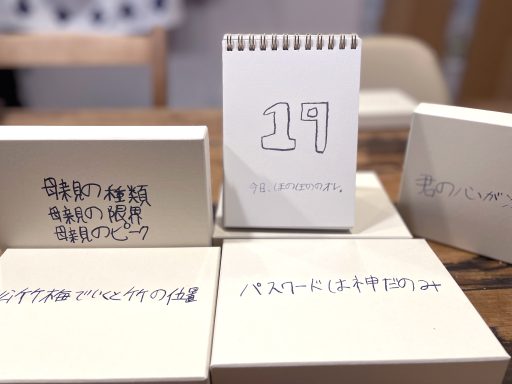 19
今日、ほのほののオレ。
母親の種類
母親の限界
母親のピーク
君の心が
松竹梅でいくと竹の位置
パスワードは神だのみ